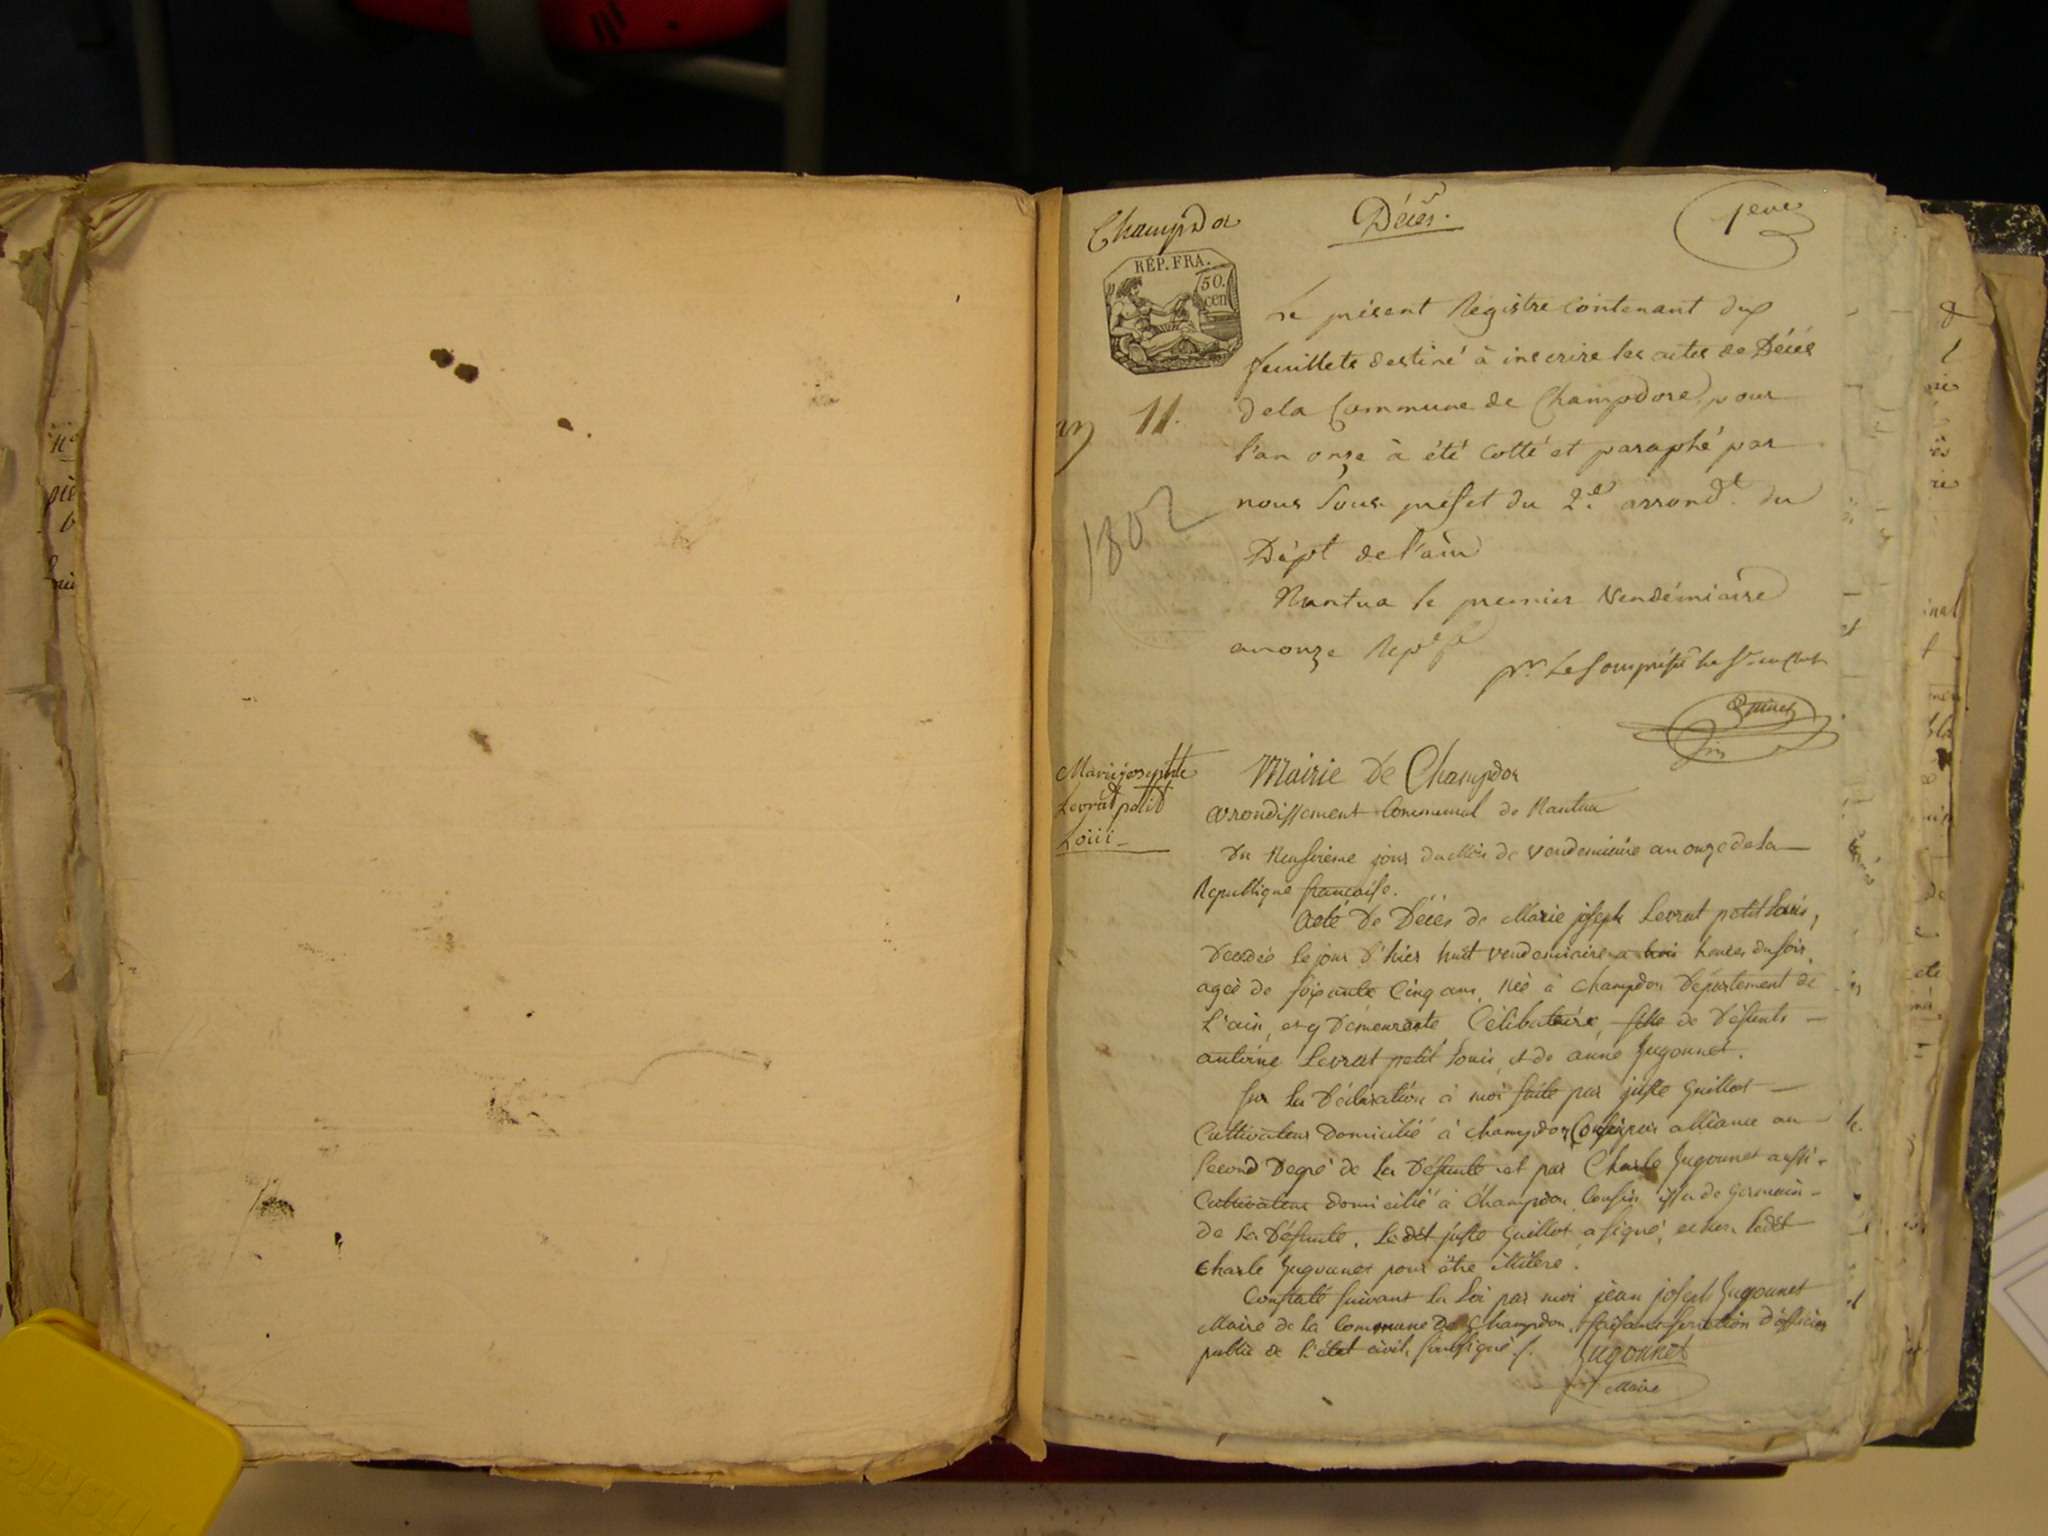 Champdor
Décès.
1ere
RÉP. FRA.
50.
cen
Le présent Registre contenant dix
feuillets destiné à inscrire les actes de Décès
an 11.
dela Commune de Champdore pour
l'an onze à été cotté et paraphé par
nous Sous-préfet du 2.e arrond.t du
1802
Dépt de l'ain
Nantua le premier Vendémiaire
an onze Rep.e
pr. Le Sous préfet
Marie josephte
Levrat petit
Loüi
Mairie De Champdor
arondissement Communal de Nantua
Du Neufvieme jour du Mois de Vendemiaire an onze de la
Republique française.
Acte De Décès de Marie joseph Levrat petit Louis,
Decedée le jour d'hier huit vendemiaire a trois heures du soir,
agée de soixante Cinq ans, Née à Champdor Département de
L'ain, et y Demeurante, Célibataire, fille de Défunts
antoine Levrat petit Louis, et de anne Jugonnet.
Sur La Déclaration à moi faite par juste Guillot
Cultivateur Domicilié à Champdor, Cousin par alliance au
Second Degré de La Défunte et par Charle Jugonnet aussi
Cultivateur domicilié à Champdor Cousin issu de Germain
de La Défunte. Ledit juste Guillot a signé, et non ledit
Charle Jugonnet pour être illitéré.
Constaté suivant La Loi par moi jean joseph Jugonnet
Maire de la Commune De Champdor, faisant fonction d'officier
public de L'état civil, soussigné ./.
Jugonnet
Maire